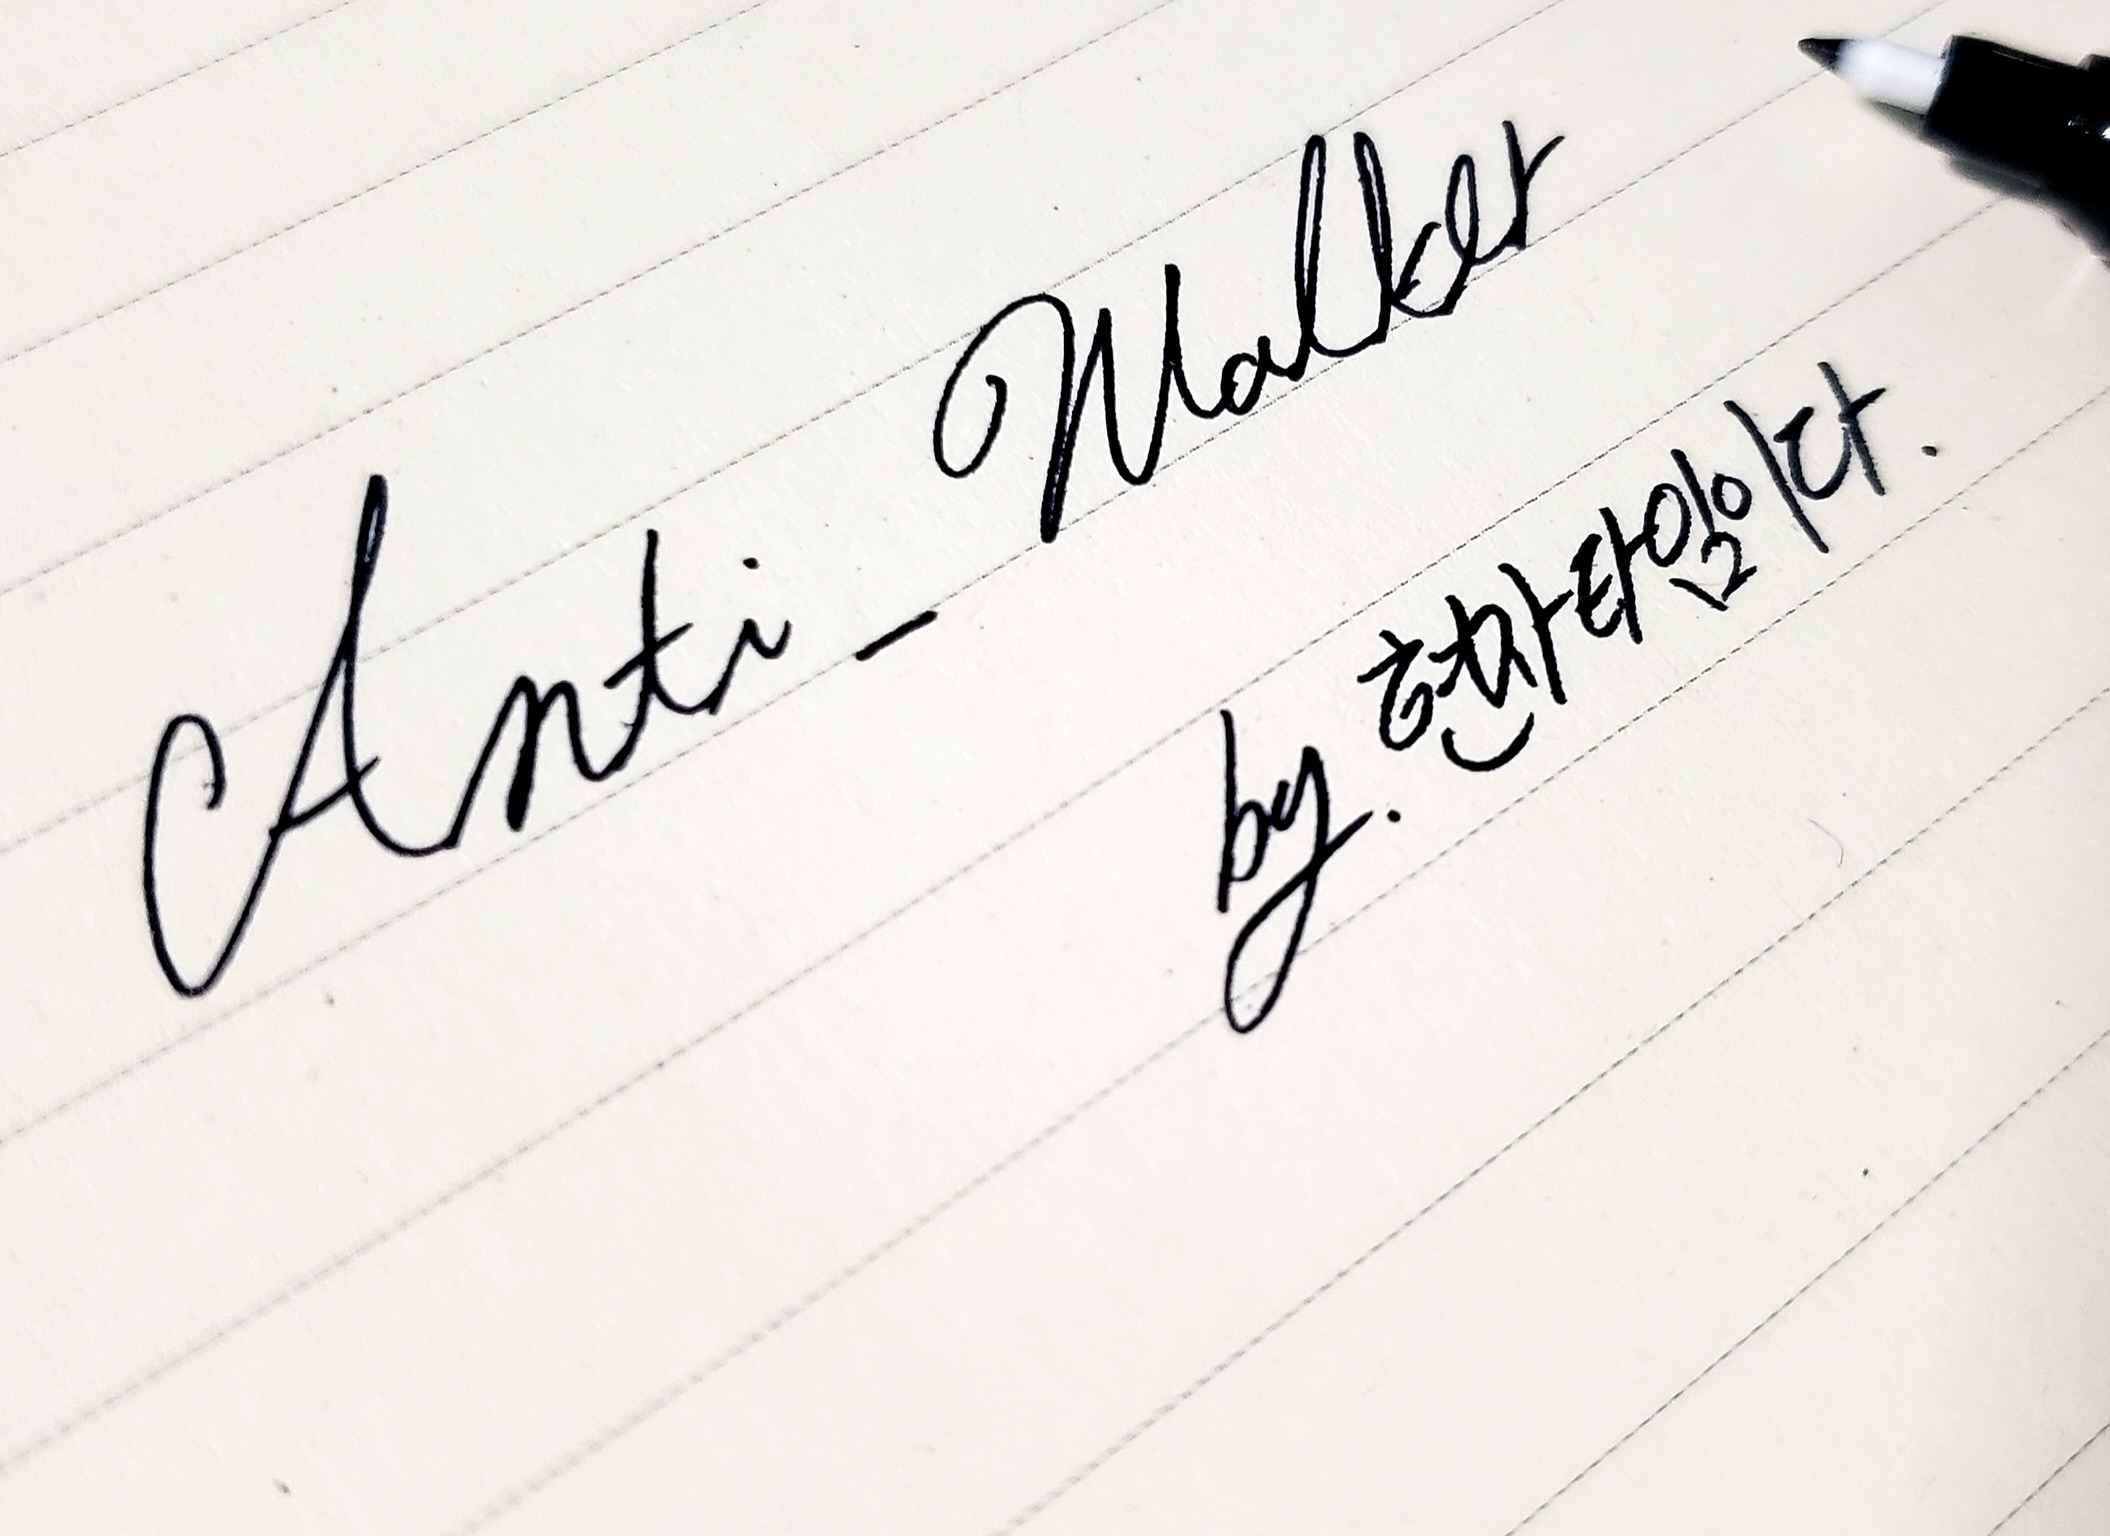 Anti - Walker
by. 현자타임이다.